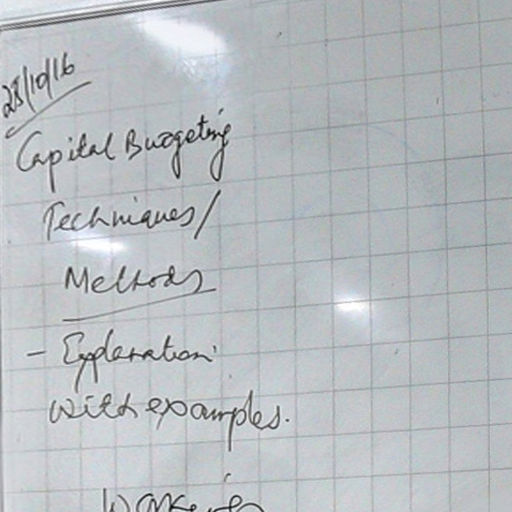 28/10/16
Capital Budgeting
Techniques/
Methods
- Explanation
with examples.